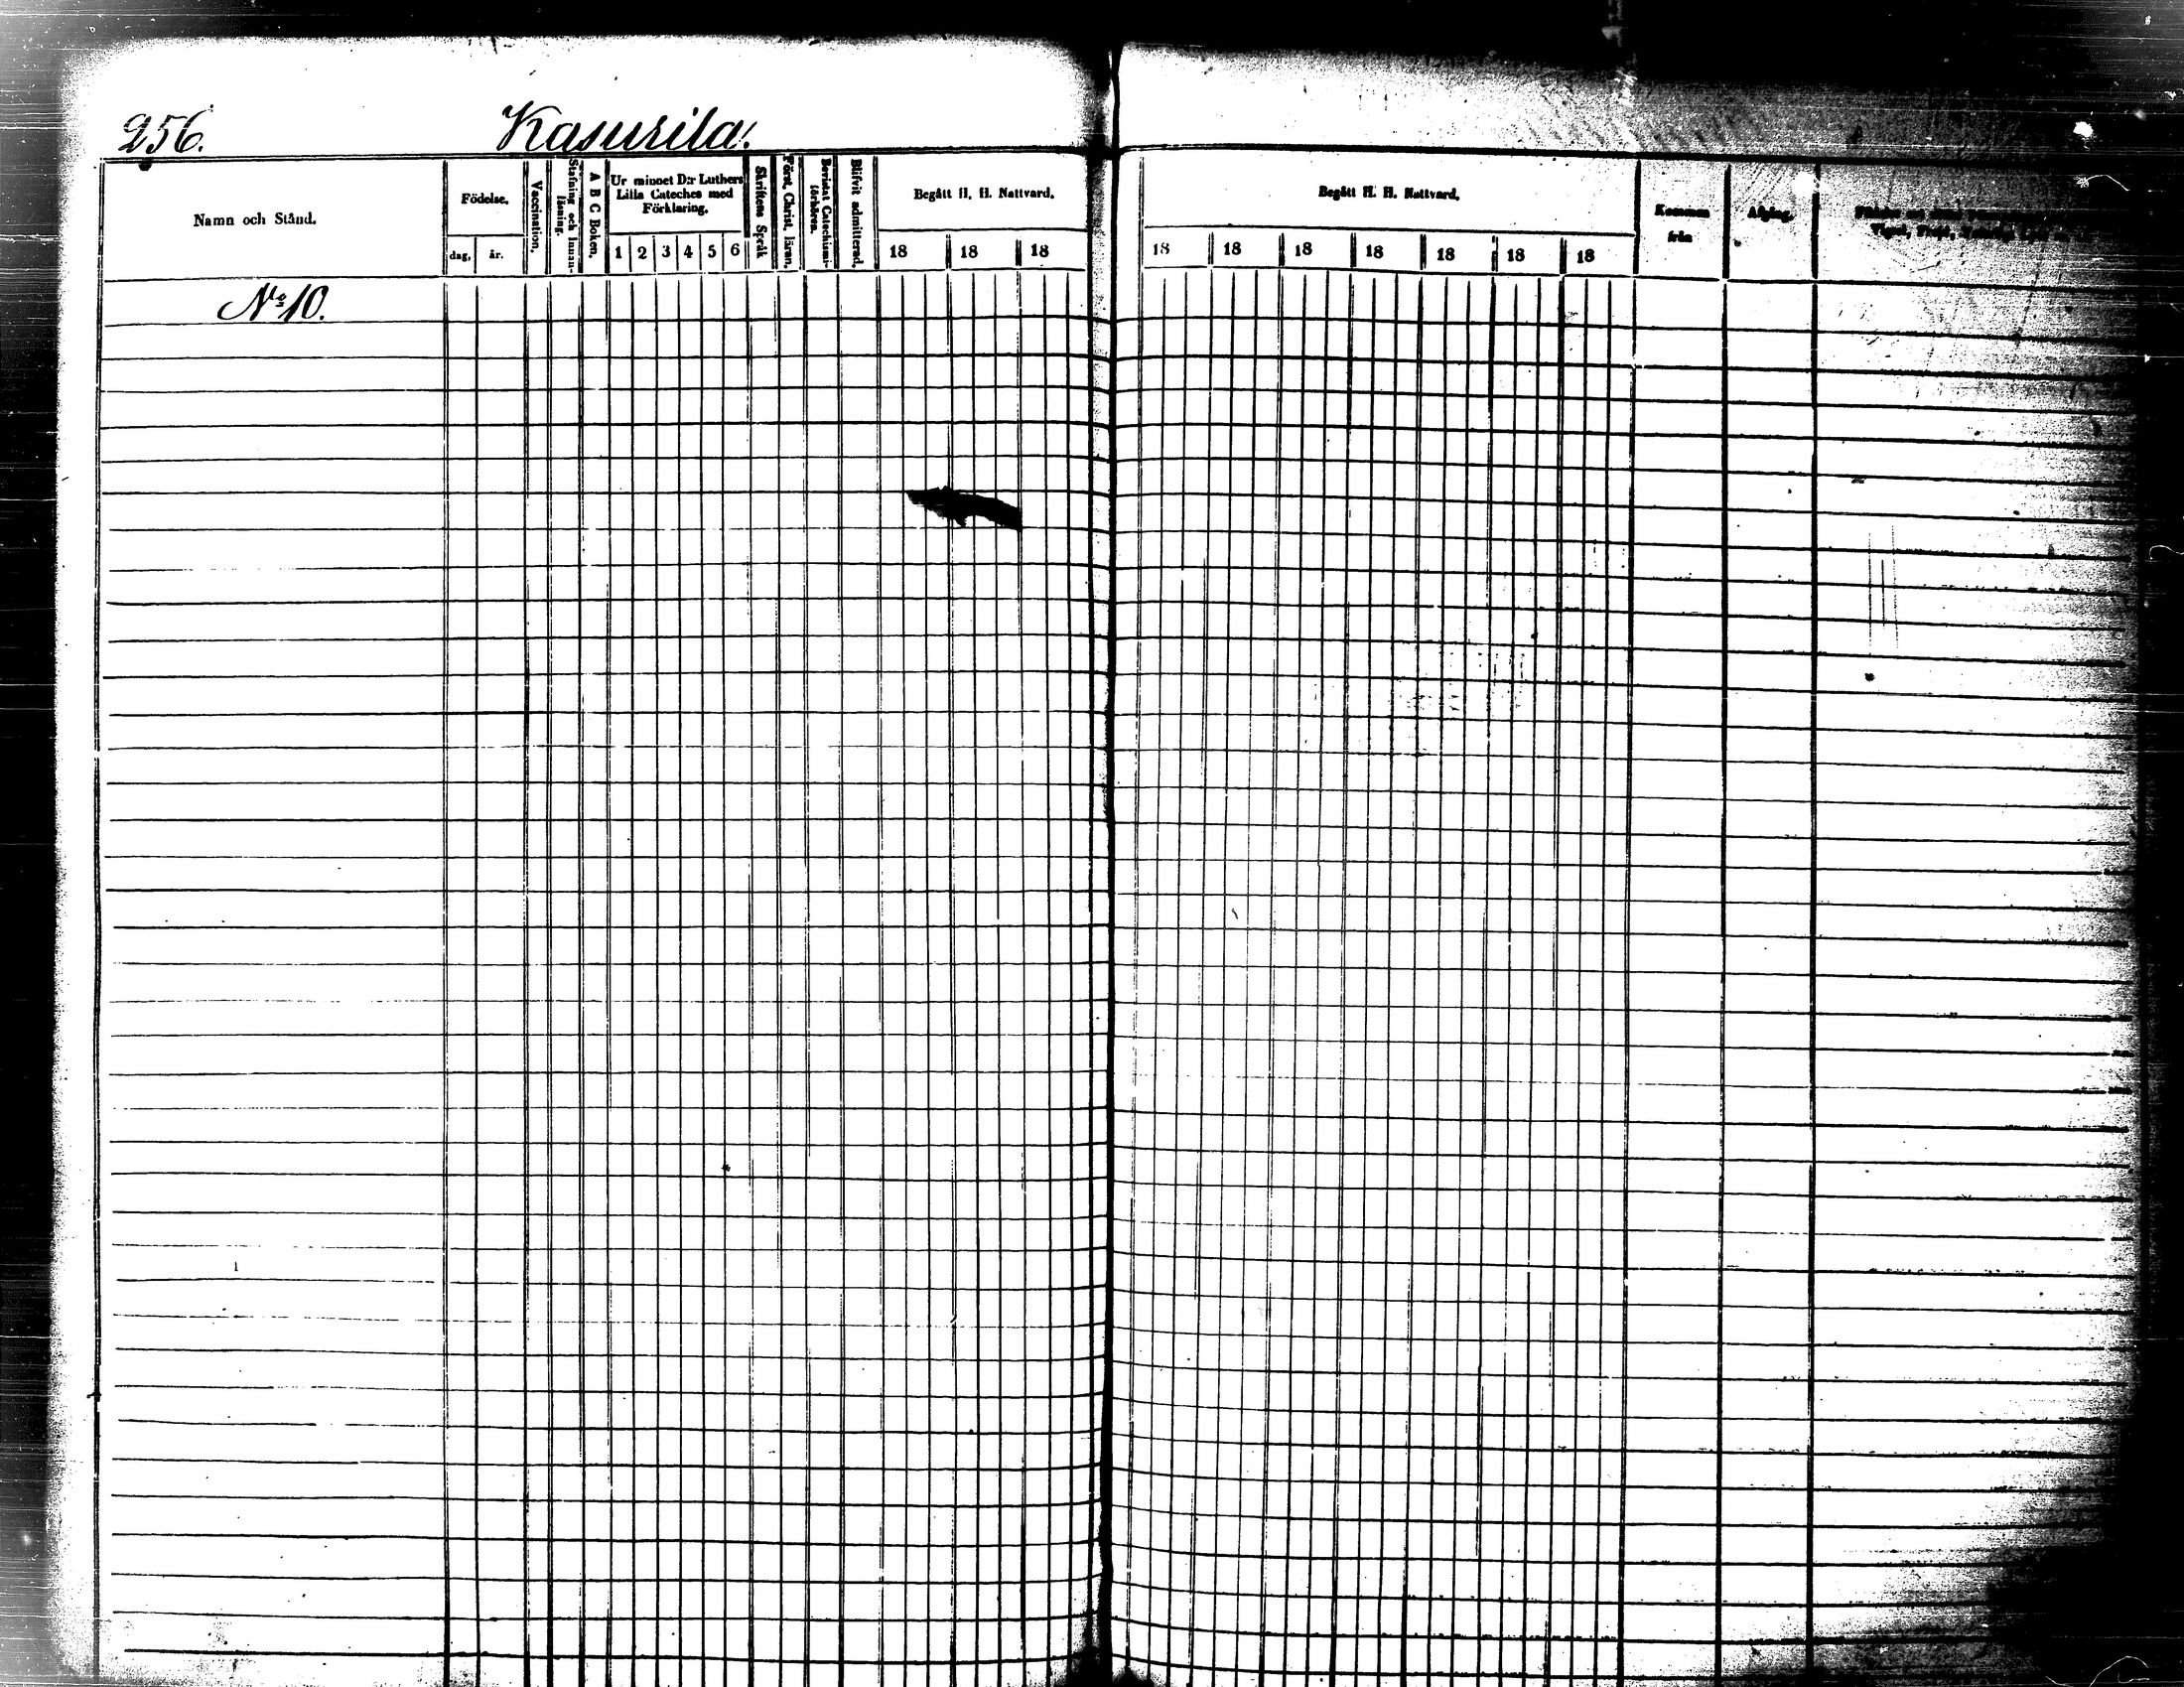 256. Kasurila.
Namn och Stånd.
Födelse.
dag, år.
Vaccination.
Stafning och Innan-
läsning.
A B C Boken.
Ur minnet D:r Luthers
Lilla Cateches med
Förklaring.
1 2 3 4 5 6
Skriftens Språk
Först. Christ. läran.
Bevistat Catechismi-
förhören.
Blifvit admitterad.
Begått H. H. Nattvard.
18 18 18
Begått H. H. Nattvard.
18 18 18 18 18 18 18
Kommen
från
Afgång.
No 10.